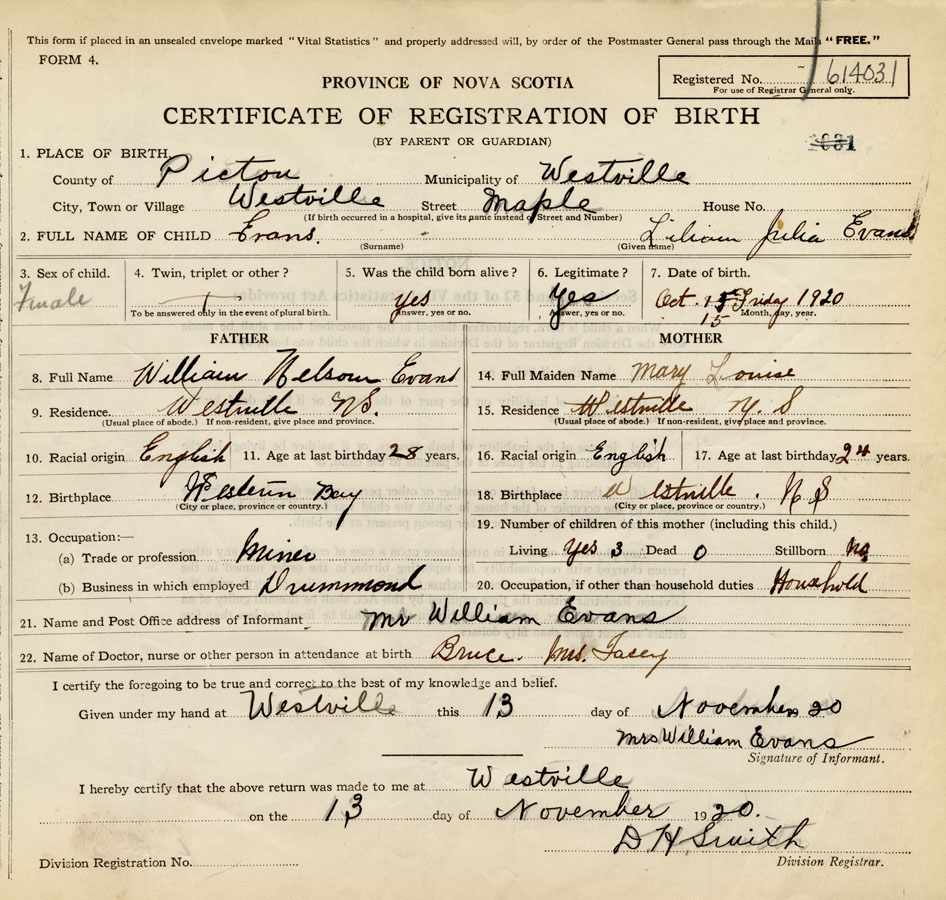 This form if placed in an unsealed envelope marked "Vital Statistics" and properly addressed will, by order of the Postmaster General pass through the Mails "FREE."
FORM 4.
Registered No. 614031
For use of Registrar General only.
PROVINCE OF NOVA SCOTIA
CERTIFICATE OF REGISTRATION OF BIRTH
(BY PARENT OR GUARDIAN)
1. PLACE OF BIRTH
County of Pictou Municipality of Westville
City, Town or Village Westville Street Maple House No.
(If birth occurred in a hospital, give its name instead of Street and Number)
2. FULL NAME OF CHILD Evans. Lilian Julia Evans
(Surname) (Given name)
3. Sex of child. 4. Twin, triplet or other? 5. Was the child born alive? 6. Legitimate? 7. Date of birth.
Female Yes Yes Oct. 15 Friday 1920
To be answered only in the event of plural birth. Answer, yes or no. Answer, yes or no. Month, day, year.
15
FATHER MOTHER
8. Full Name William Nelson Evans 14. Full Maiden Name Mary Louise
9. Residence. Westville N.S. 15. Residence Westville N.S
(Usual place of abode.) If non-resident, give place and province. (Usual place of abode.) If non-resident, give place and province.
10. Racial origin English 11. Age at last birthday 28 years. 16. Racial origin English 17. Age at last birthday 24 years.
12. Birthplace Western Bay 18. Birthplace Westville. N S
(City or place, province or country.) (City or place, province or country.)
13. Occupation:— 19. Number of children of this mother (including this child.)
(a) Trade or profession Miner Living Yes 3 Dead 0 Stillborn No
(b) Business in which employed Drummond 20. Occupation, if other than household duties Household
21. Name and Post Office address of Informant Mr William Evans
22. Name of Doctor, nurse or other person in attendance at birth Bruce. Mrs. Facey
I certify the foregoing to be true and correct to the best of my knowledge and belief.
Given under my hand at Westville this 13 day of November 20
Mrs William Evans
Signature of Informant.
I hereby certify that the above return was made to me at Westville
on the 13 day of November 1920.
D H Smith
Division Registration No. Division Registrar.